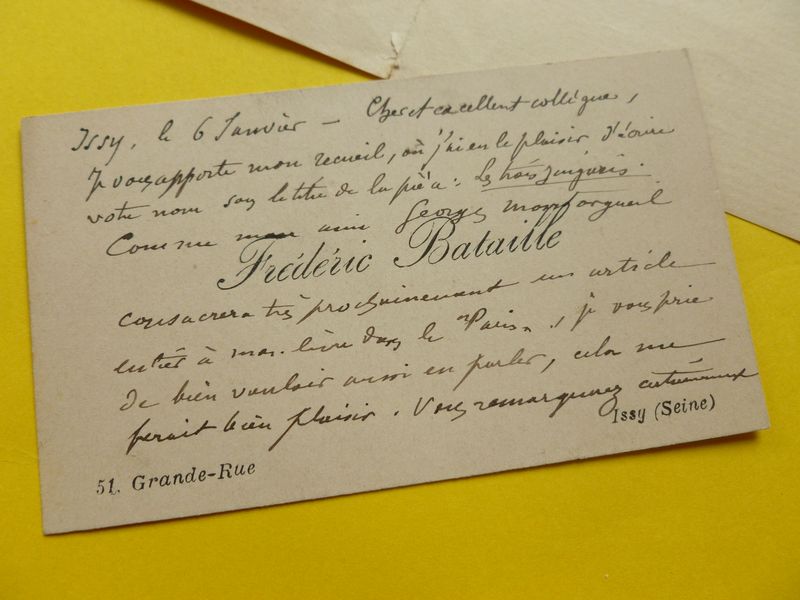 Issy, le 6 Janvier — Cher et excellent collègue,
Je vous apporte mon recueil, où j'ai eu le plaisir d'écrire
votre nom sous le titre de la pièce : Les trois
Comme mon ami Georges Montorgueil
Frédéric Bataille
consacrera très prochainement un article
entier à mon livre dans le "Paris", je vous prie
de bien vouloir aussi en parler, cela me
ferait bien plaisir. Vous remarquerez certainement
51, Grande-Rue
Issy (Seine)